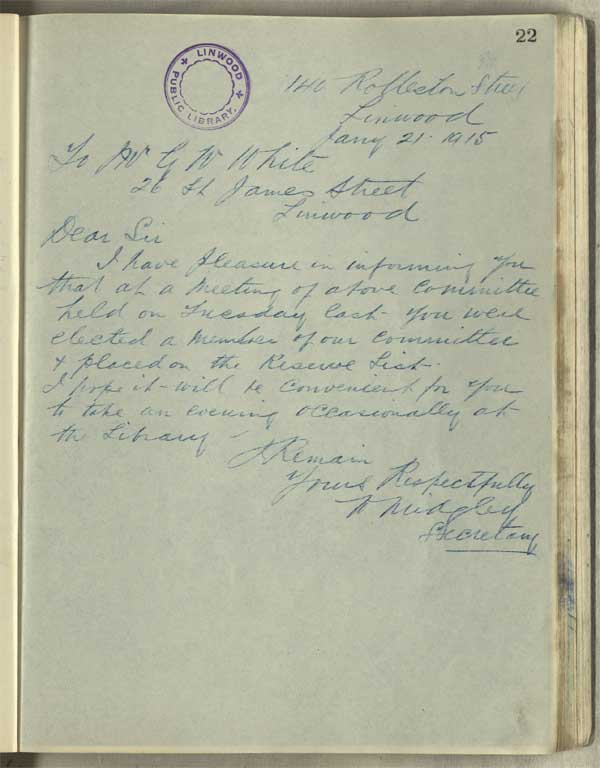 22
LINWOOD
PUBLIC LIBRARY.
140 Rolleston Street
Linwood
Jany 21. 1915
To Mr G W White
26 St James Street
Linwood
Dear Sir
I have pleasure in informing you
that at a meeting of above Committee
held on Tuesday last you were
elected a member of our Committee
& placed on the Reserve List.
I hope it will be convenient for you
to take an evening occasionally at
the Library
I Remain
Yours Respectfully
Midgley
Secretary